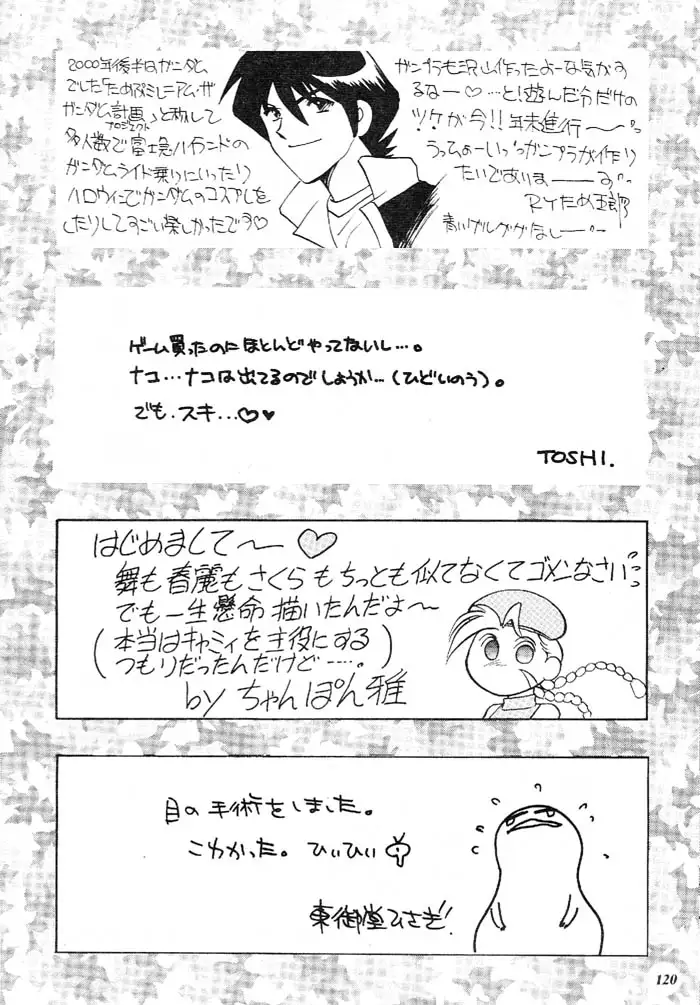 2000年後半はガンダム
でした「ため改ミレニアム・ザ
ガンダム計画」と称して
プロジェクト
多人数で富士急ハイランドの
ガンダムライド乗りにいったり
ハロウィンでガンダムのコスプレを
したりしてすごい楽しかったです♡
ガンプラも沢山作ったよーな気がす
るなー♡…と!遊んだ分だけの
ツケが今!!年末進行〜
うっひょーいっ ガンプラが作り
たいでありまーーーす
RYため五郎
ゲーム買ったのにほとんどやってないし…。
ナコ…ナコは出てるのでしょうか…(ひどいのう)。
でも、スキ…♡♥
TOSHI.
はじめまして〜♡
舞も春麗もさくらもちっとも似てなくてゴメンなさい
でも一生懸命描いたんだよ〜
(本当はキャミィを主役にする
つもりだったんだけど……。)
by ちゃんぽん雅
目の手術をしました。
こわかった。ひぃひぃ
東御堂ひさぎ!
120